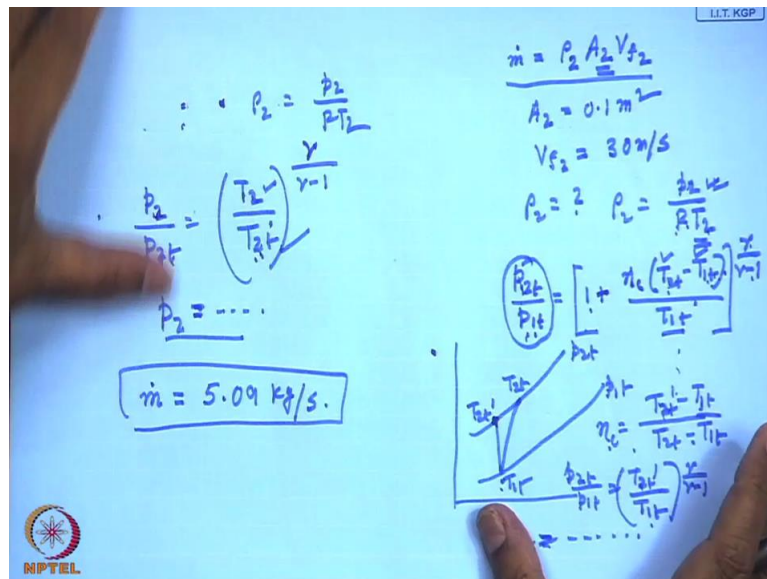 I.I.T. KGP
ρ₂ = p₂ / RT₂
p₂ / p₂t = (T₂ / T₂t)^(γ/γ-1)
p₂ = ----
ṁ = 5.09 kg/s.
ṁ = ρ₂ A₂ Vf₂
A₂ = 0.1 m²
Vf₂ = 30 m/s
ρ₂ = ? ρ₂ = p₂ / RT₂
p₂t / p₁t = [1 + ηc (T₂t - T₁t) / T₁t]^(γ/γ-1)
p₂t
T₂t
p₁t
T₂t'
T₁t
ηc = T₂t' - T₁t / T₂t - T₁t
p₂t / p₁t = (T₂t' / T₁t)^(γ/γ-1)
= ------
NPTEL